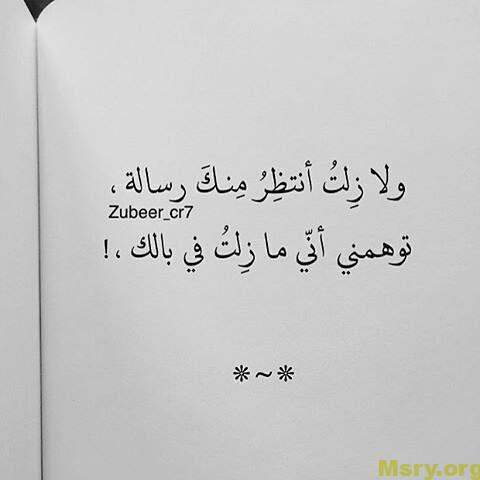 ولا زِلتُ أنتظِرُ مِنكَ رسالة ،
Zubeer_cr7
توهمني أنّي ما زِلتُ في بالك ،!
*~*
Msry.org